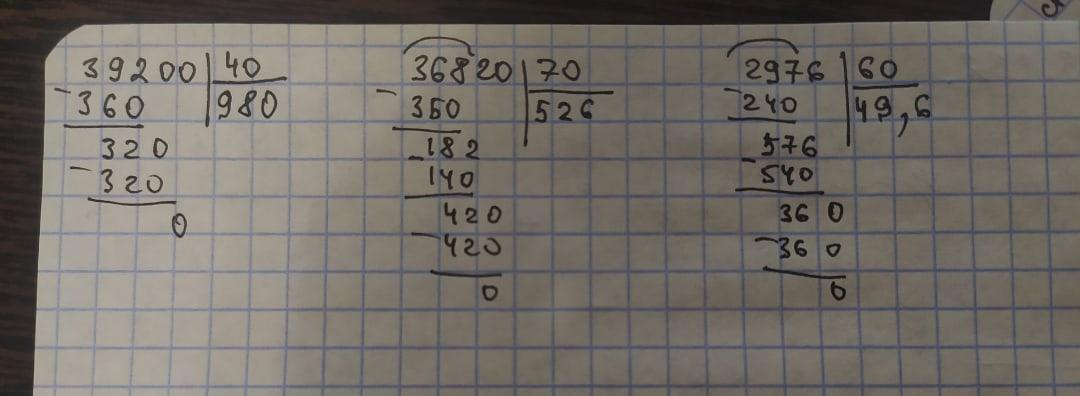 39200 40
-360 980
320
-320
0
36820 70
-350 526
182
-140
420
-420
0
2976 60
-240 49,6
576
-540
360
-360
0